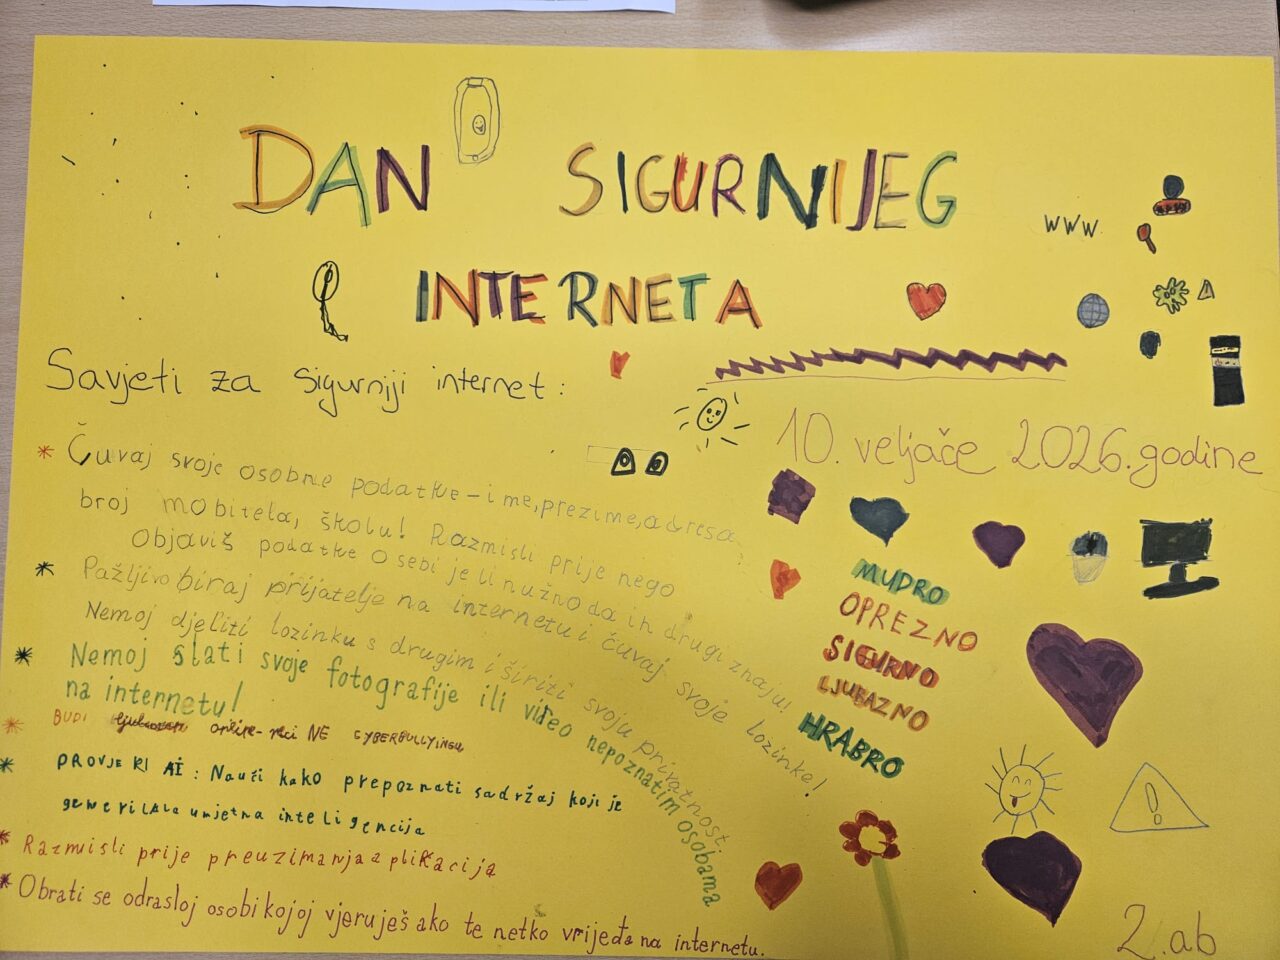 DAN SIGURNIJEG
INTERNETA
www.
Savjeti za sigurniji internet:
10. veljače 2026. godine
* Čuvaj svoje osobne podatke - ime, prezime, adresa,
broj mobitela, školu! Razmisli prije nego
Objaviš podatke o sebi je li nužno da ih drugi znaju!
* Pažljivo biraj prijatelje na internetu i čuvaj svoje lozinke!
Nemoj djeliti lozinku s drugim i širiti svoju privatnost
* Nemoj slati svoje fotografije ili video nepoznatim osobama
na internetu!
* BUDI online - reci NE CYBERBULLYINGU
* PROVJERI AI: Nauči kako prepoznati sadržaj koji je
generilala umjetna inteligencija
* Razmisli prije preuzimanja aplikacija
* Obrati se odrasloj osobi kojoj vjeruješ ako te netko vrijeđa na internetu.
MUDRO
OPREZNO
SIGURNO
LJUBAZNO
HRABRO
!
2.ab